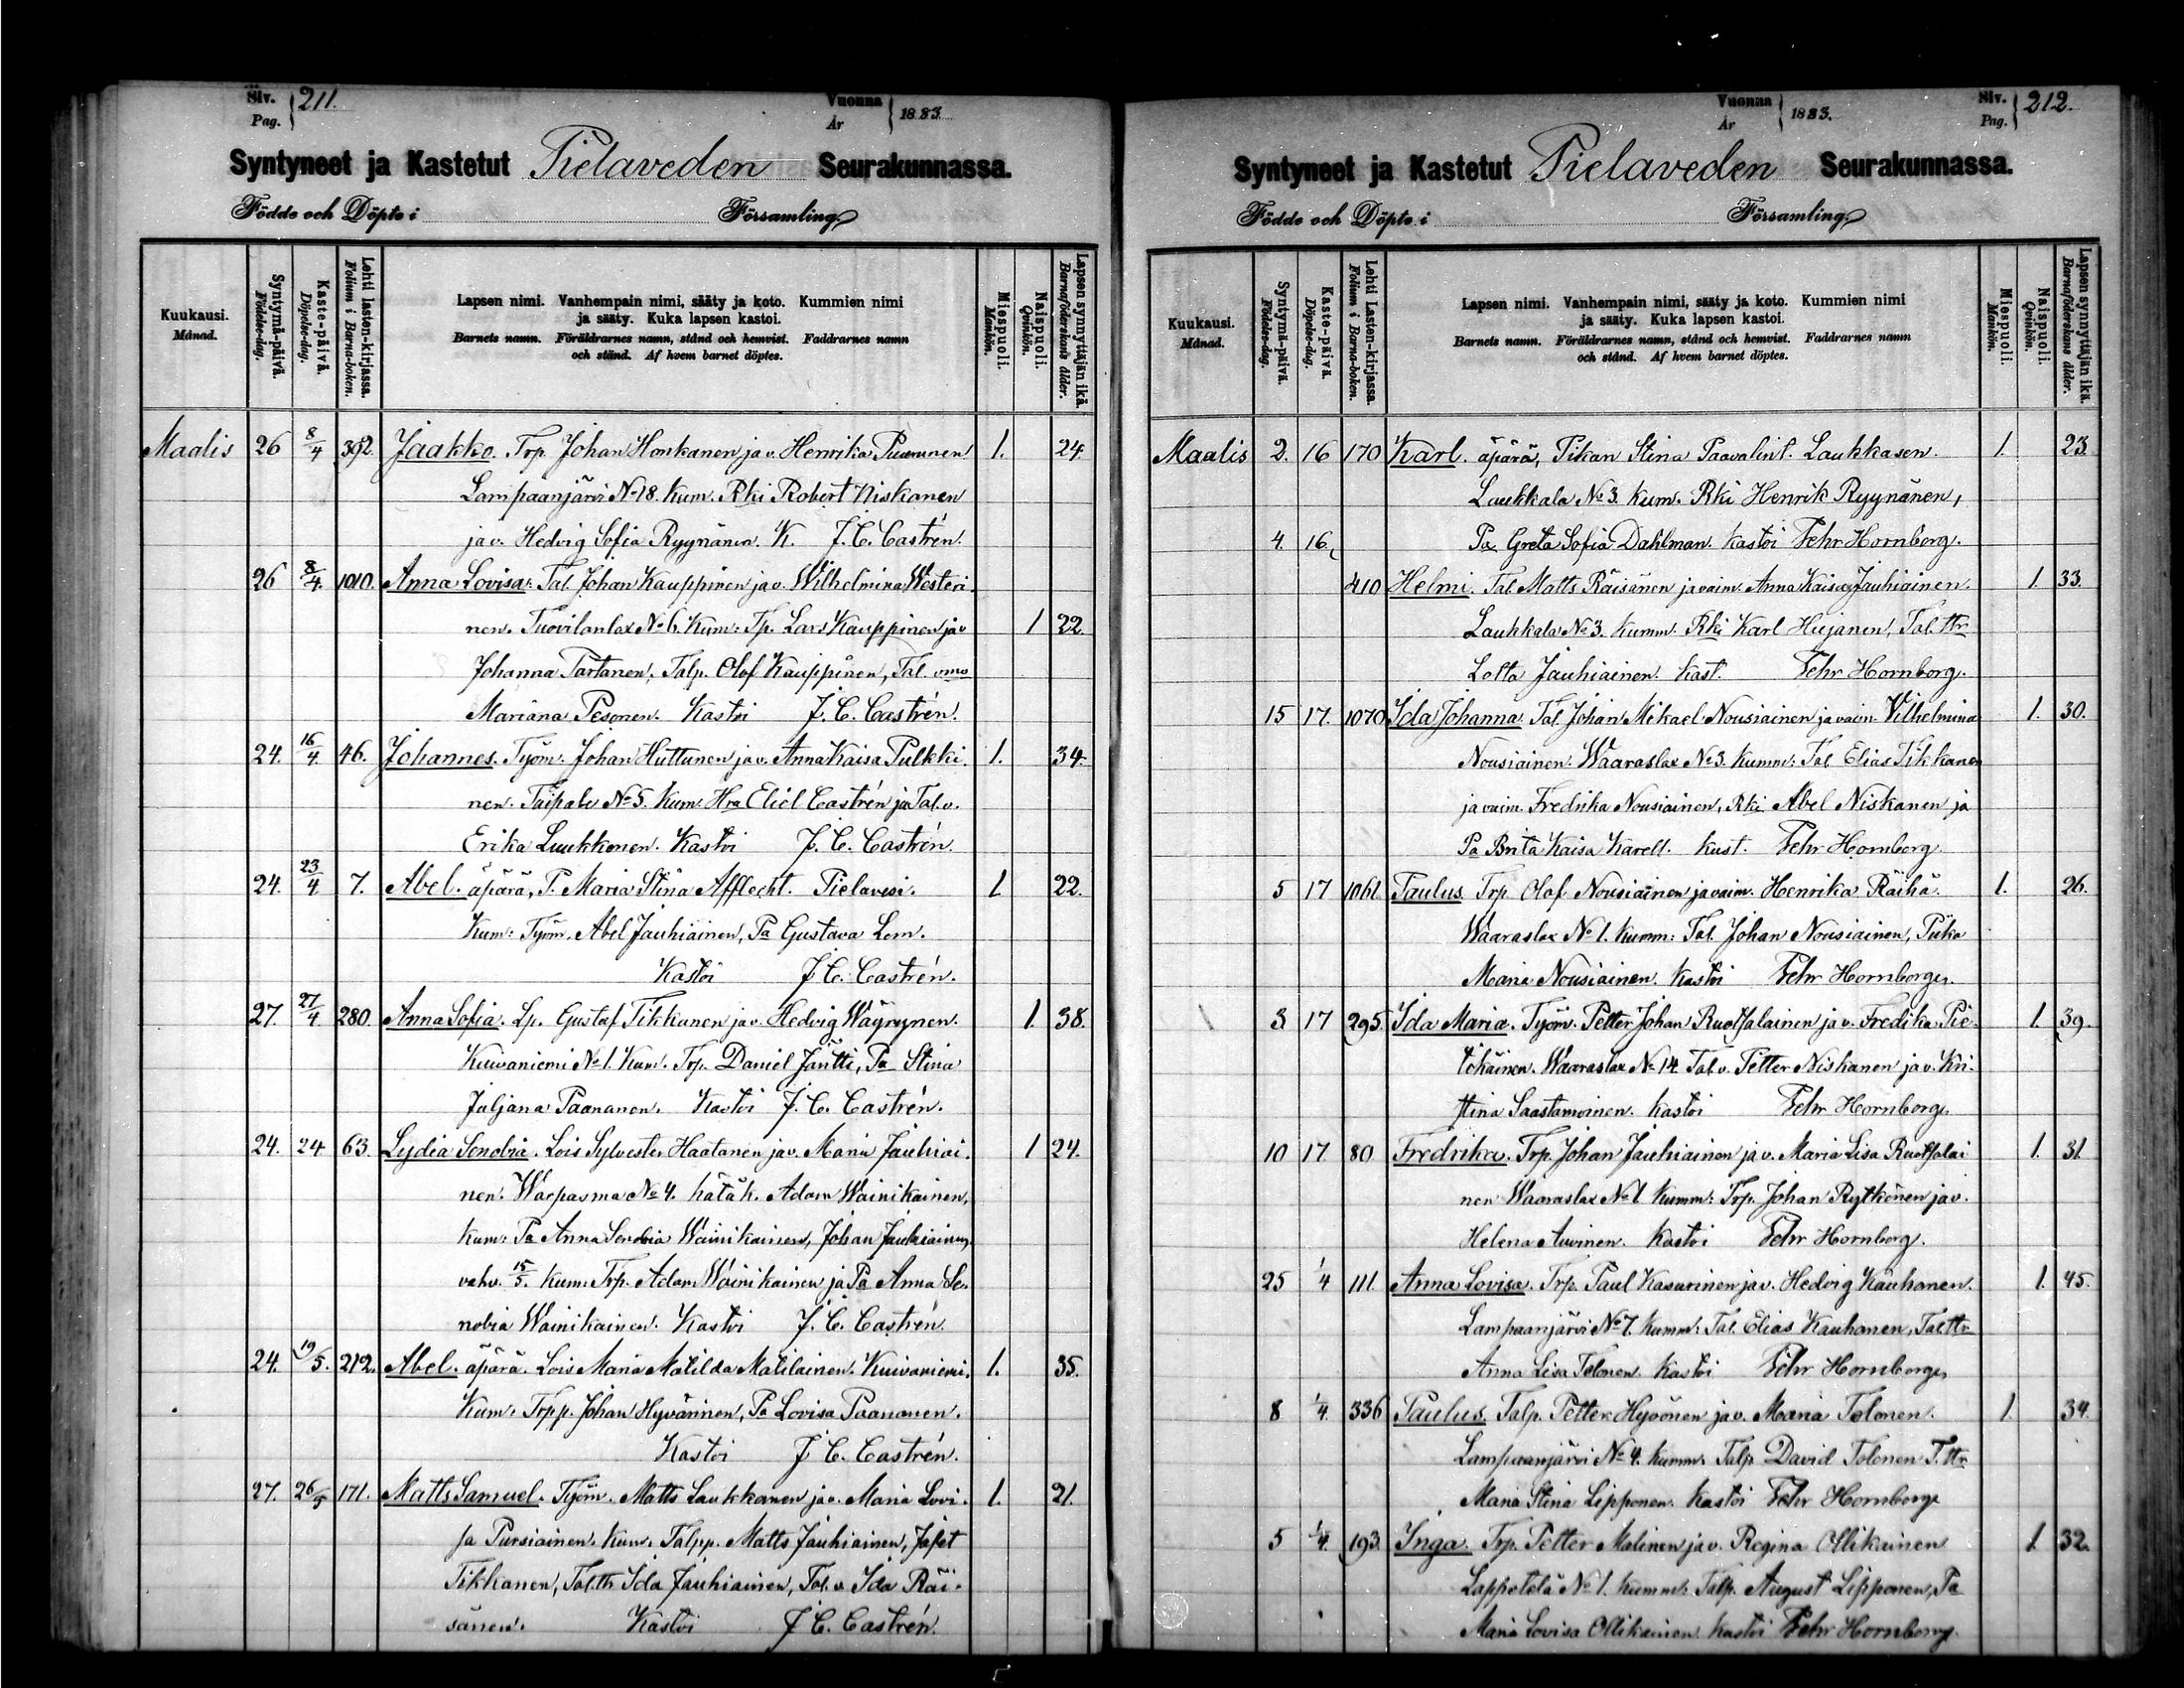 Siv. Pag. 211. Vuonna År 1883.
Syntyneet ja Kastetut Pielaveden Seurakunnassa.
Födde och Döpte i Församling.
Kuukausi. Månad.
Syntymä-päivä. Födelse-dag.
Kaste-päivä. Döpelse-dag.
Lehti lasten-kirjassa. Folium i Barna-boken.
Lapsen nimi. Vanhempain nimi, sääty ja koto. Kummien nimi
ja sääty. Kuka lapsen kastoi.
Barnets namn. Föräldrarnes namn, stånd och hemvist. Faddrarnes namn
och stånd. Af hvem barnet döptes.
Miespuoli. Mankön.
Naispuoli. Qvinkön.
Lapsen synnyttäjän ikä. Barnaföderskans ålder.
Maalis 26 8/4 392. Jaakko. Trp. Johan Honkanen ja v. Henrika Puumunen 1. 24.
Lampaanjärvi No 18. Kum. Rki Robert Niskanen
ja v. Hedvig Sofia Ryynänen. K. J. C. Castrén.
26 8/4. 1010. Anna Lovisa. Tal. Johan Kauppinen ja v. Wilhelmina Westeri-
nen. Tuovilanlax No 6. Kum: Tp. Lars Kauppinen ja v 1 22.
Johanna Tartanen, Talp. Olof Kauppinen, Tal. vmo
Mariana Pesonen. Kastoi J. C. Castrén.
24. 16/4. 46. Johannes. Työm. Johan Huttunen ja v. Anna Kaisa Pulkki- 1. 34.
nen. Taipale No 5. Kum. Hra Eliel Castrén ja Tal. v.
Erika Luukkonen. Kastoi J. C. Castrén.
24. 23/4 7. Abel. äpärä, P. Maria Stina Afflecht. Pielavesi. 1. 22.
Kum: Työm. Abel Jauhiainen, Pa Gustava Lem.
Kastoi J. C. Castrén.
27. 27/4 280. Anna Sofia. Lp. Gustaf Tikkanen ja v. Hedvig Wäyrynen. 1. 38.
Kuivaniemi No 1. Kum. Trp. Daniel Jäntti, Pa Stina
Juljana Paananen. Kastoi J. C. Castrén.
24. 24 63. Lydia Senobia. Lois Sylvester Haatanen ja v. Maria Jauhiai- 1 24.
nen. Waepasma No 4. hätäk. Adam Wainikainen,
Kum: Pa Anna Senobia Wainikainen, Johan Jauhiainen.
vahv. 15/5. Kum: Trp. Adam Wainikainen ja Pa Anna Se-
nobia Wainikainen. Kastoi J. C. Castrén.
24. 19/5. 212. Abel. äpärä. Lois Maria Matilda Matilainen. Kuivaniemi. 1. 35.
Kum. Trpp. Johan Hyvärinen, Pa Lovisa Paananen.
Kastoi J. C. Castrén.
27. 26/5 171. Matts Samuel. Työm. Matts Laukkanen ja v. Maria Lovi- 1. 21.
sa Pursiainen. Kum. Talpp. Matts Jauhiainen, Jafet
Tikkanen, Tal.tr Ida Jauhiainen, Tal. v. Ida Räi-
sänen. Kastoi J. C. Castrén.
Vuonna År 1883. Siv. Pag. 212.
Syntyneet ja Kastetut Pielaveden Seurakunnassa.
Födde och Döpte i Församling.
Kuukausi. Månad.
Syntymä-päivä. Födelse-dag.
Kaste-päivä. Döpelse-dag.
Lehti Lasten-kirjassa. Folium i Barna-boken.
Lapsen nimi. Vanhempain nimi, sääty ja koto. Kummien nimi
ja sääty. Kuka lapsen kastoi.
Barnets namn. Föräldrarnes namn, stånd och hemvist. Faddrarnes namn
och stånd. Af hvem barnet döptes.
Miespuoli. Mankön.
Naispuoli. Qvinkön.
Lapsen synnyttäjän ikä. Barnaföderskans ålder.
Maalis 2. 16 170 Karl. äpärä, Pikan Stina Paavalint. Laukkasen. 1. 23.
Laukkala No 3. Kum. Rki Henrik Ryynänen,
4. 16. Pa Greta Sofia Dahlman. Kastoi Fehr Hornborg.
410 Helmi. Tal. Matts Räisänen ja vaim. Anna Kaisa Jauhiainen. 1. 33.
Laukkala No 3. Kumm. Rki Karl Hujanen, Tal. ttr
Lotta Jauhiainen. Kast. Fehr Hornborg.
15 17. 1070 Ida Johanna. Tal. Johan Mikael Nousiainen ja vaim. Vilhelmina 1. 30.
Nousiainen. Waaraslax No 3. Kumm: Tal. Elias Tikkanen
ja vaim. Fredrika Nousiainen, Rki Abel Niskanen ja
Pa Brita Kaisa Karell. Kast. Fehr Hornborg
5 17 1061. Paulus. Trp. Olof Nousiainen ja vaim. Henrika Räihä. 1. 26.
Waaraslax No 1. Kumm: Tal. Johan Nousiainen, Piika
Maria Nousiainen. Kastoi Fehr Hornborg.
3. 17 295. Ida Maria. Työm. Petter Johan Ruotsalainen ja v. Fredika Pie- 1. 39.
tikäinen. Waaraslax No 14. Tal. v. Petter Niskanen ja v. Kri-
stina Saastamoinen. Kastoi Fehr Hornborg.
10 17. 80 Fredrika. Trp. Johan Jauhiainen ja v. Maria Lisa Ruotsalai 1. 31.
nen Waaraslax No 1. Kumm: Trp. Johan Rytkönen ja v.
Helena Auvinen. Kastoi Fehr Hornborg.
25 1/4 111. Anna Lovisa. Trp. Paul Kasurinen ja v. Hedvig Kauhanen. 1. 45.
Lampaanjärvi No 7. Kumm: Tal. Elias Kauhanen, Tal.ttr
Anna Lisa Tolonen. Kastoi Fehr Hornborg.
8 1/4. 336 Paulus. Talp. Petter Hyvönen ja v. Maria Tolonen. 1. 34.
Lampaanjärvi No 4. Kumm. Talp David Tolonen T. ttr
Maria Stina Lipponen. Kastoi Fehr Hornborg
5 1/4. 193. Inga. Trp. Petter Malinen ja v. Regina Ollikainen 1. 32.
Lappetelä No 1. Kumm: Talp. August Lipponen, Pa
Maria Lovisa Ollikainen. Kastoi Fehr Hornborg.